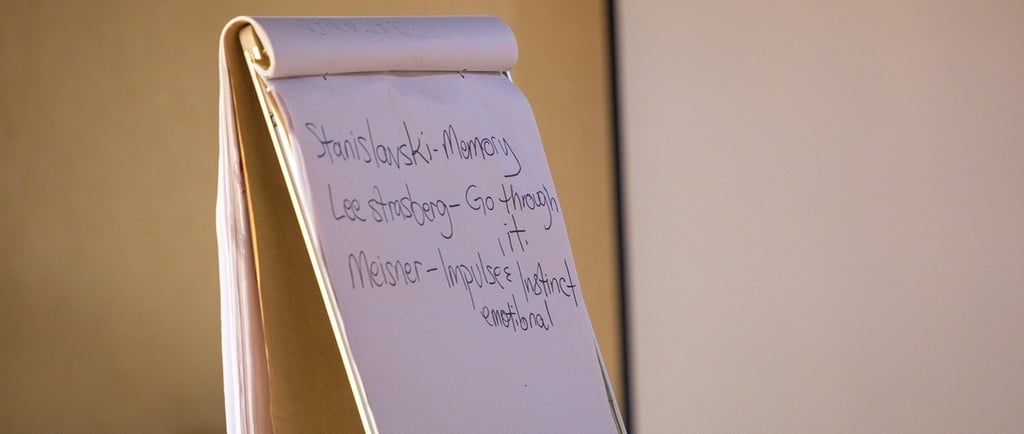 Stanislavski-Memory
Lee strasberg- Go through
it.
Meisner-Impulse & Instinct
emotional